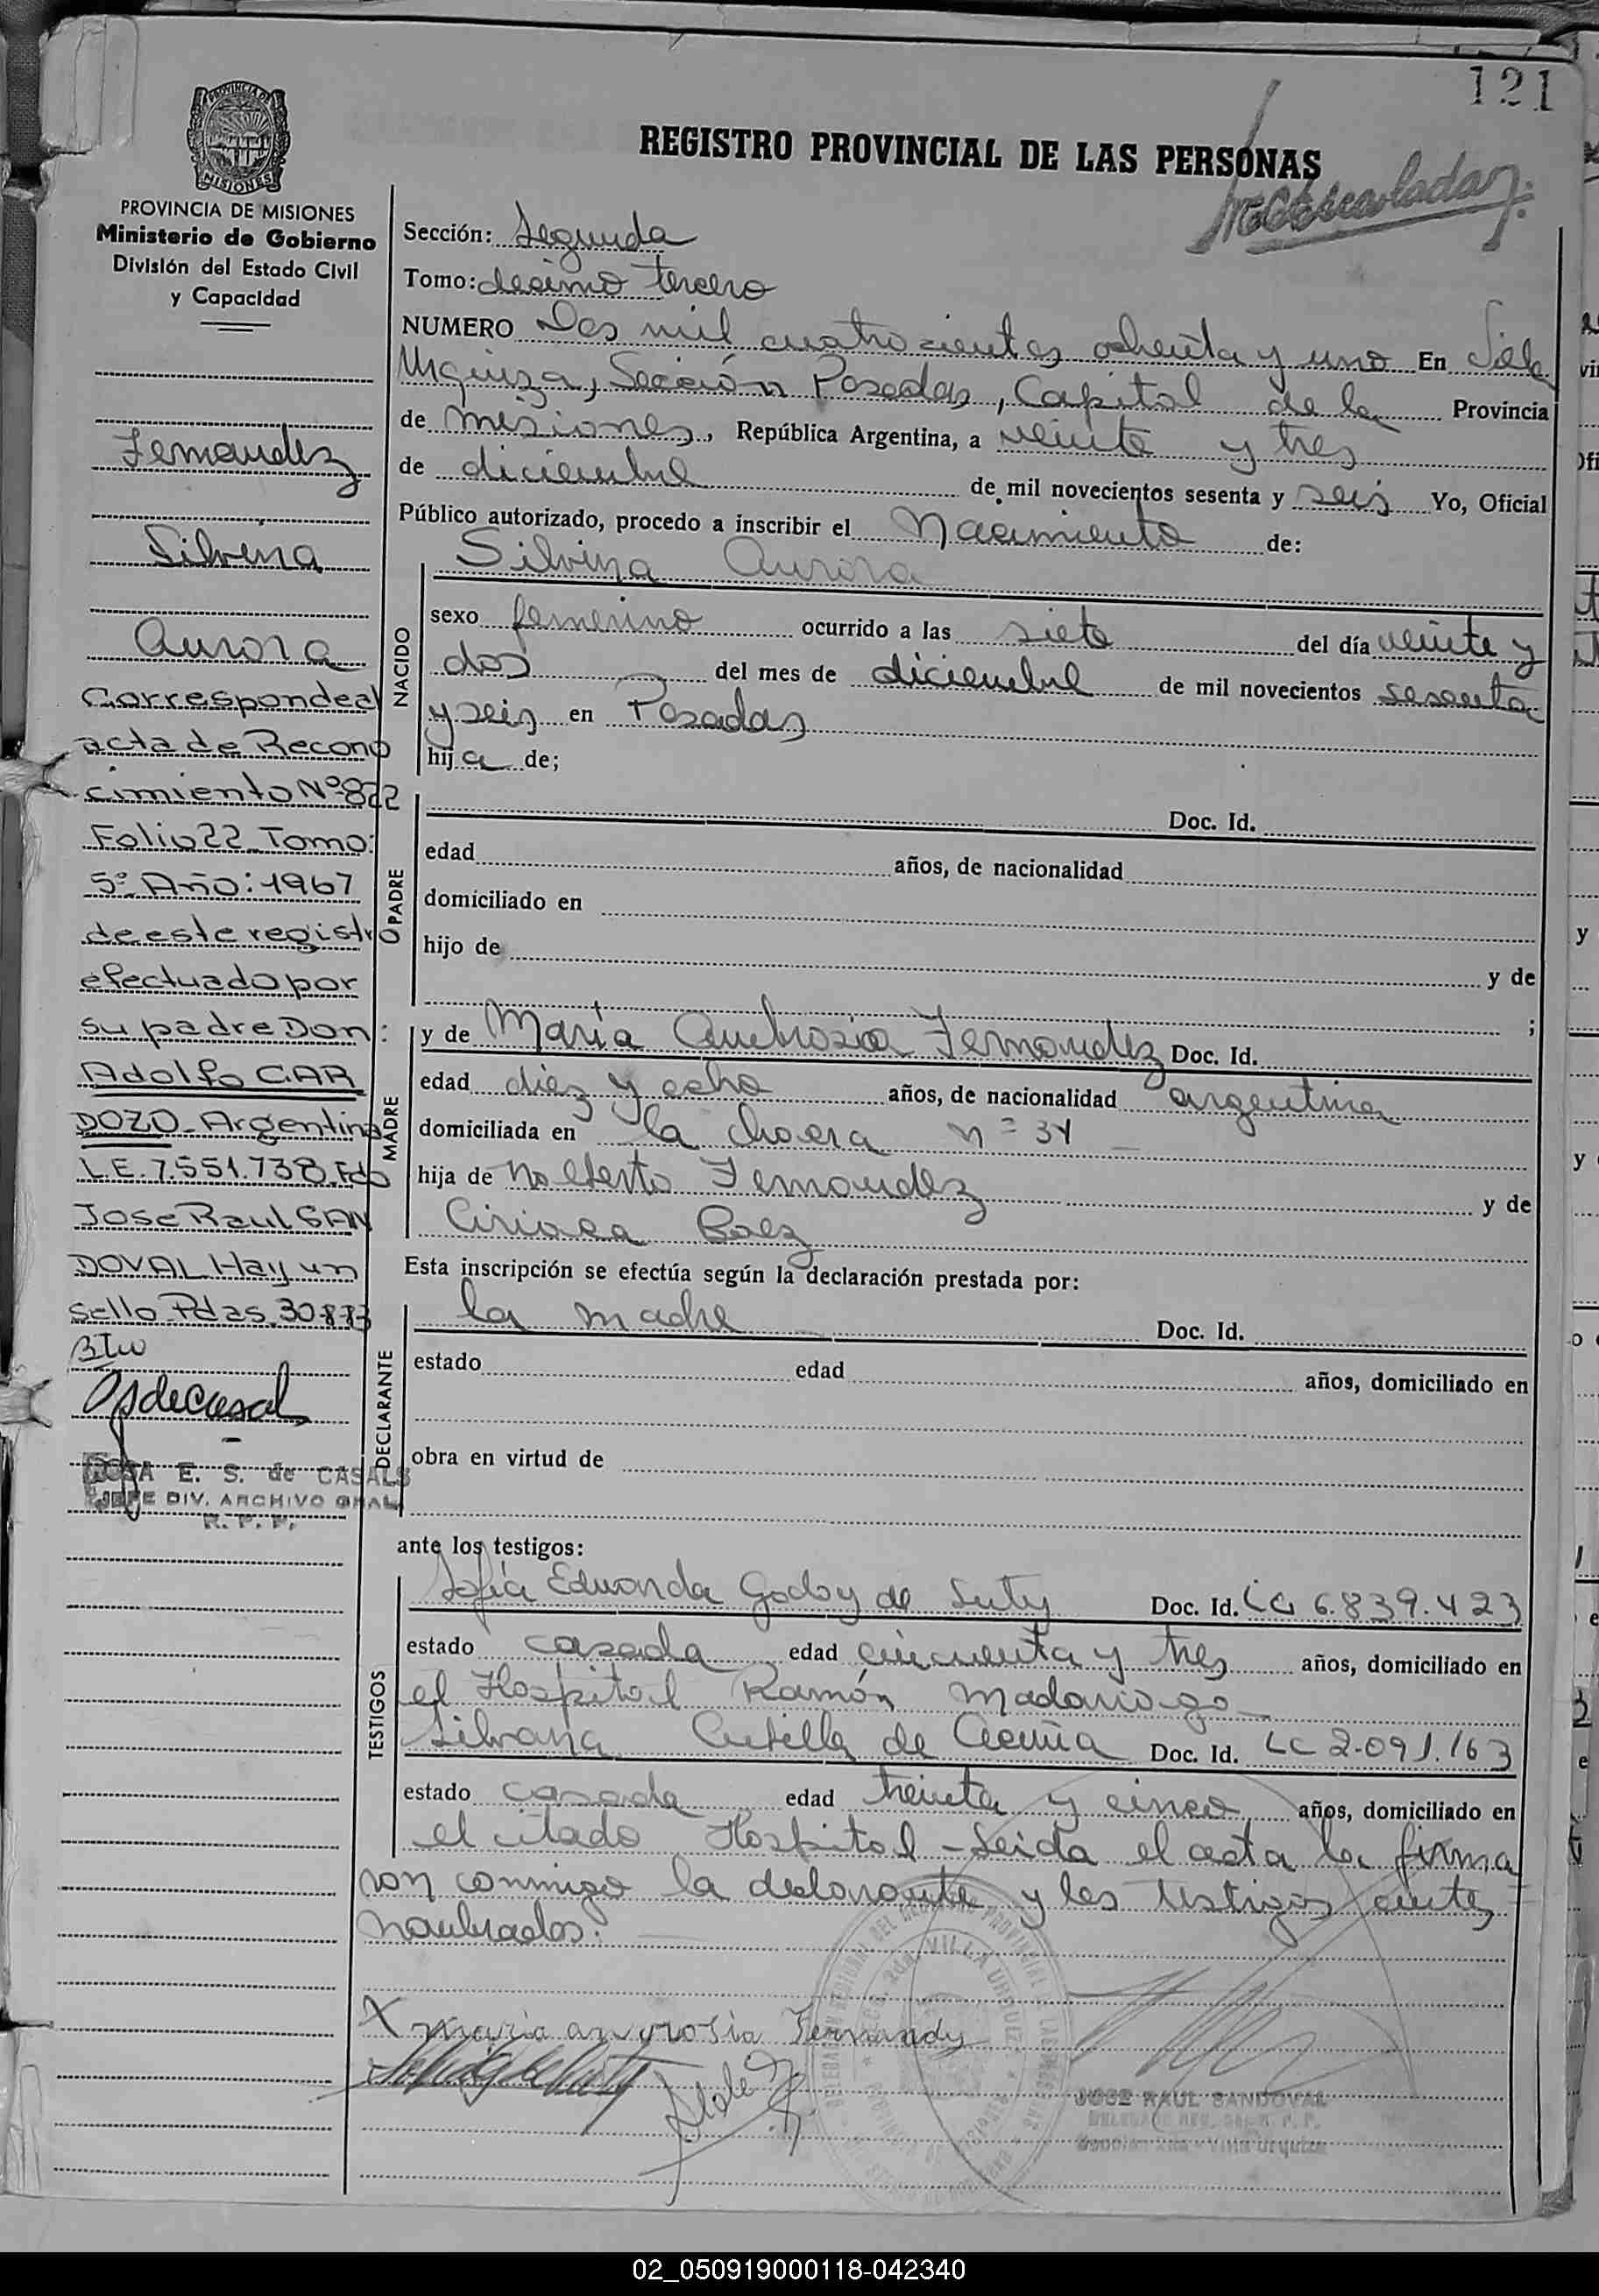 121
REGISTRO PROVINCIAL DE LAS PERSONAS
PROVINCIA DE MISIONES
Ministerio de Gobierno
División del Estado Civil
y Capacidad
Fernandez
Silvina
Aurora
Corresponde al
acta de Recono
cimiento Nº 822
Folio 22 Tomo:
5º Año: 1967
de este registro
efectuado por
su padre Don:
Adolfo CAR
DOZO Argentino
L.E. 7.551.738 Fdo
Jose Raul SAN
DOVAL Hay un
Sello Pdas. 30-8-73
ROSA E. S. de CASALS
JEFE DIV. ARCHIVO GRAL.
R. P. P.
Sección: Segunda
Tomo: decimo tercero
NUMERO Dos mil cuatrocientos ochenta y uno En Villa
Urquiza, Sección Posadas, Capital de la Provincia
de Misiones, República Argentina, a veinte y tres
de diciembre de mil novecientos sesenta y seis Yo, Oficial
Público autorizado, procedo a inscribir el Nacimiento de:
NACIDO
Silvina Aurora
sexo femenino ocurrido a las siete del día veinte y
dos del mes de diciembre de mil novecientos sesenta
y seis en Posadas
hija de;
PADRE
Doc. Id.
edad años, de nacionalidad
domiciliado en
hijo de y de
;
MADRE
y de Maria Ambrosia Fernandez Doc. Id.
edad diez y ocho años, de nacionalidad argentina
domiciliada en la chacra nº 34
hija de Nolberto Fernandez y de
Ciriaca Baez
Esta inscripción se efectúa según la declaración prestada por:
DECLARANTE
la madre Doc. Id.
estado edad años, domiciliado en
obra en virtud de
ante los testigos:
TESTIGOS
Sofia Eduarda Godoy de Doc. Id. LC 6.839.423
estado casada edad cincuenta y tres años, domiciliado en
el Hospital Ramón Madariaga
Silvana de Acuña Doc. Id. LC 2.091.163
estado casada edad treinta y cinco años, domiciliado en
el citado Hospital - Leida el acta la firma
ron conmigo la declarante y los testigos antes
nombrados.
X maria amvrosia Fernandez
JOSE RAUL SANDOVAL
VILLA URQUIZA
02_050919000118-042340